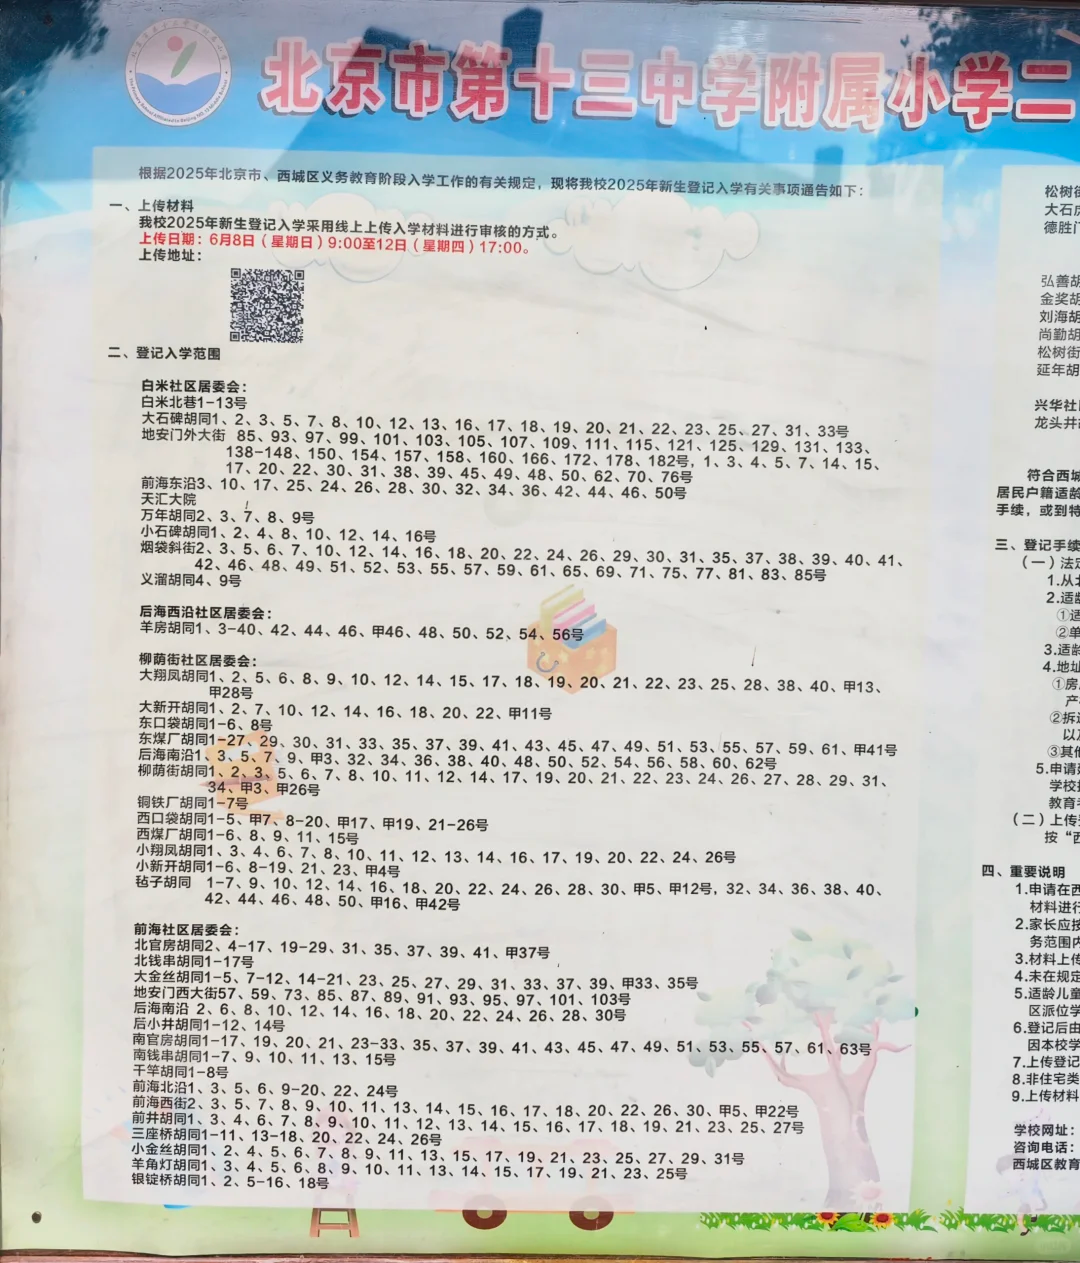 北京市第十三中学附属小学二
根据2025年北京市、西城区义务教育阶段入学工作的有关规定，现将我校2025年新生登记入学有关事项通告如下：
一、上传材料
我校2025年新生登记入学采用线上上传入学材料进行审核的方式。
上传日期：6月8日（星期日）9:00至12日（星期四）17:00。
上传地址：
二、登记入学范围
白米社区居委会：
白米北巷1-13号
大石碑胡同1、2、3、5、7、8、10、12、13、16、17、18、19、20、21、22、23、25、27、31、33号
地安门外大街 85、93、97、99、101、103、105、107、109、111、115、121、125、129、131、133、
138-148、150、154、157、158、160、166、172、178、182号，1、3、4、5、7、14、15、
17、20、22、30、31、38、39、45、49、48、50、62、70、76号
前海东沿3、10、17、25、24、26、28、30、32、34、36、42、44、46、50号
天汇大院
万年胡同2、3、7、8、9号
小石碑胡同1、2、4、8、10、12、14、16号
烟袋斜街2、3、5、6、7、10、12、14、16、18、20、22、24、26、29、30、31、35、37、38、39、40、41、
42、46、48、49、51、52、53、55、57、59、61、65、69、71、75、77、81、83、85号
义溜胡同4、9号
后海西沿社区居委会：
羊房胡同1、3-40、42、44、46、甲46、48、50、52、54、56号
柳荫街社区居委会：
大翔凤胡同1、2、5、6、8、9、10、12、14、15、17、18、19、20、21、22、23、25、28、38、40、甲13、
甲28号
大新开胡同1、2、7、10、12、14、16、18、20、22、甲11号
东口袋胡同1-6、8号
东煤厂胡同1-27、29、30、31、33、35、37、39、41、43、45、47、49、51、53、55、57、59、61、甲41号
后海南沿1、3、5、7、9、甲3、32、34、36、38、40、48、50、52、54、56、58、60、62号
柳荫街胡同1、2、3、5、6、7、8、10、11、12、14、17、19、20、21、22、23、24、26、27、28、29、31、
34、甲3、甲26号
铜铁厂胡同1-7号
西口袋胡同1-5、甲7、8-20、甲17、甲19、21-26号
西煤厂胡同1-6、8、9、11、15号
小翔凤胡同1、3、4、6、7、8、10、11、12、13、14、16、17、19、20、22、24、26号
小新开胡同1-6、8-19、21、23、甲4号
毡子胡同 1-7、9、10、12、14、16、18、20、22、24、26、28、30、甲5、甲12号，32、34、36、38、40、
42、44、46、48、50、甲16、甲42号
前海社区居委会：
北官房胡同2、4-17、19-29、31、35、37、39、41、甲37号
北钱串胡同1-17号
大金丝胡同1-5、7-12、14-21、23、25、27、29、31、33、37、39、甲33、35号
地安门西大街57、59、73、85、87、89、91、93、95、97、101、103号
后海南沿 2、6、8、10、12、14、16、18、20、22、24、26、28、30号
后小井胡同1-12、14号
南官房胡同1-17、19、20、21、23-33、35、37、39、41、43、45、47、49、51、53、55、57、61、63号
南钱串胡同1-7、9、10、11、13、15号
干竿胡同1-8号
前海北沿1、3、5、6、9-20、22、24号
前海西街2、3、5、7、8、9、10、11、13、14、15、16、17、18、20、22、26、30、甲5、甲22号
前井胡同1、3、4、6、7、8、9、10、11、12、13、14、15、16、17、18、19、21、23、25、27号
三座桥胡同1-11、13-18、20、22、24、26号
小金丝胡同1、2、4、5、6、7、8、9、11、13、15、17、19、21、23、25、27、29、31号
羊角灯胡同1、3、4、5、6、8、9、10、11、13、14、15、17、19、21、23、25号
银锭桥胡同1、2、5-16、18号
松树街
大石虎
德胜门
弘善胡
金奖胡
刘海胡
尚勤胡
松树街
延年胡
兴华社
龙头井
符合西城
居民户籍适龄
手续，或到特
三、登记手续
（一）法定
1.从北
2.适龄
①适
②单
3.适龄
4.地址
①房
产
②拆迁
以及
③其他
5.申请
学校
教育
（二）上传
按“西
四、重要说明
1.申请在西
材料进行
2.家长应按
务范围内
3.材料上传
4.未在规定
5.适龄儿童
区派位学
6.登记后由
因本校学
7.上传登记
8.非住宅类
9.上传材料
学校网址：
咨询电话：
西城区教育